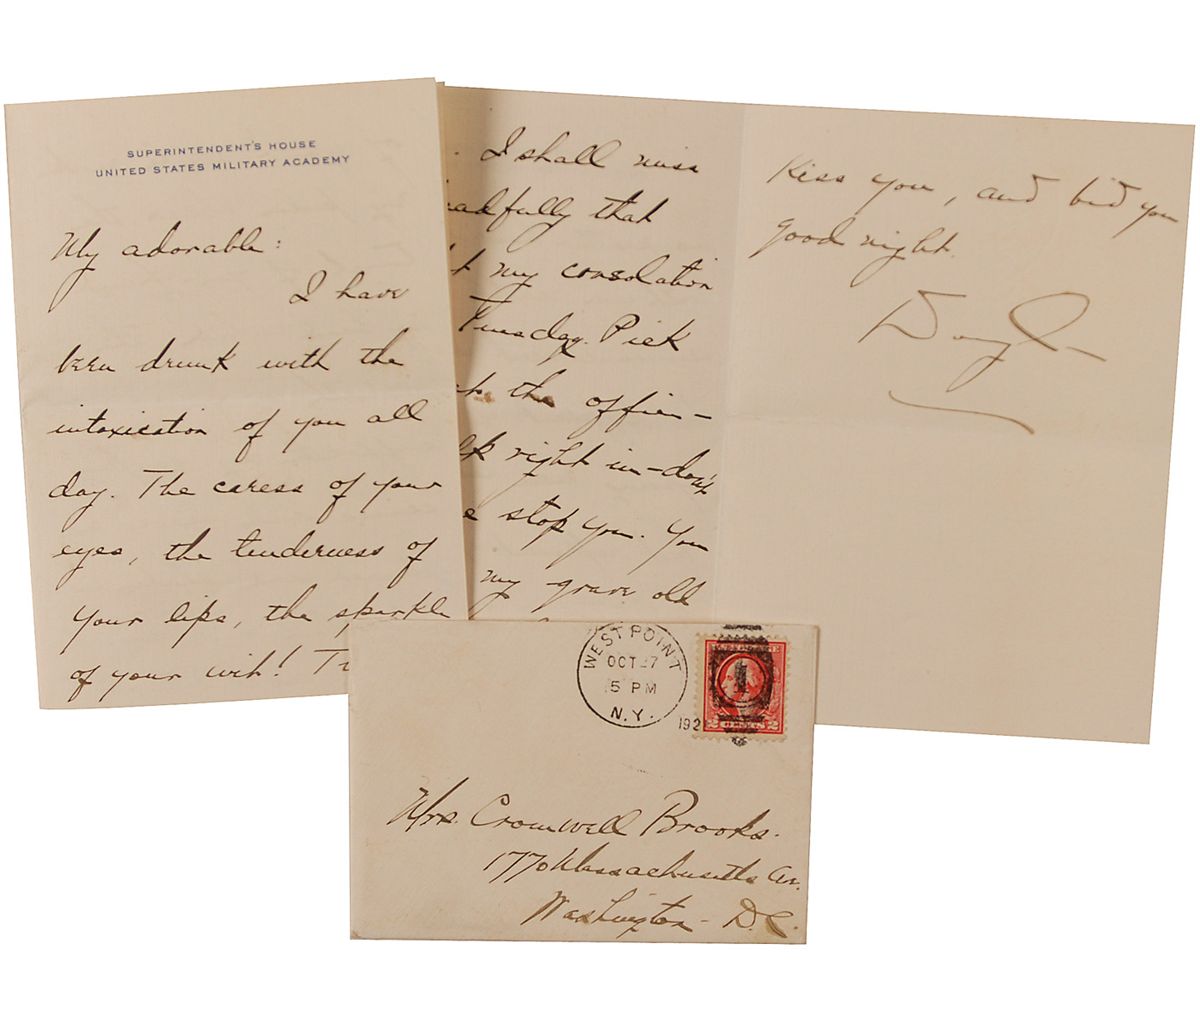 SUPERINTENDENT'S HOUSE
UNITED STATES MILITARY ACADEMY
My adorable:
I have
been drunk with the
intoxication of you all
day. The caress of your
eyes, the tenderness of
your lips, the sparkle
of your wit!
I shall miss
adfully that
my consolation
Tuesday. Pick
the officer-
right in-don't
stop you. You
my grave old
Kiss you, and bid you
good night.
WEST POINT
OCT 27
5 PM
N.Y.
192
2 2
Mrs. Cromwell Brooks.
1770 Massachusetts Av.
Washington - D.C.